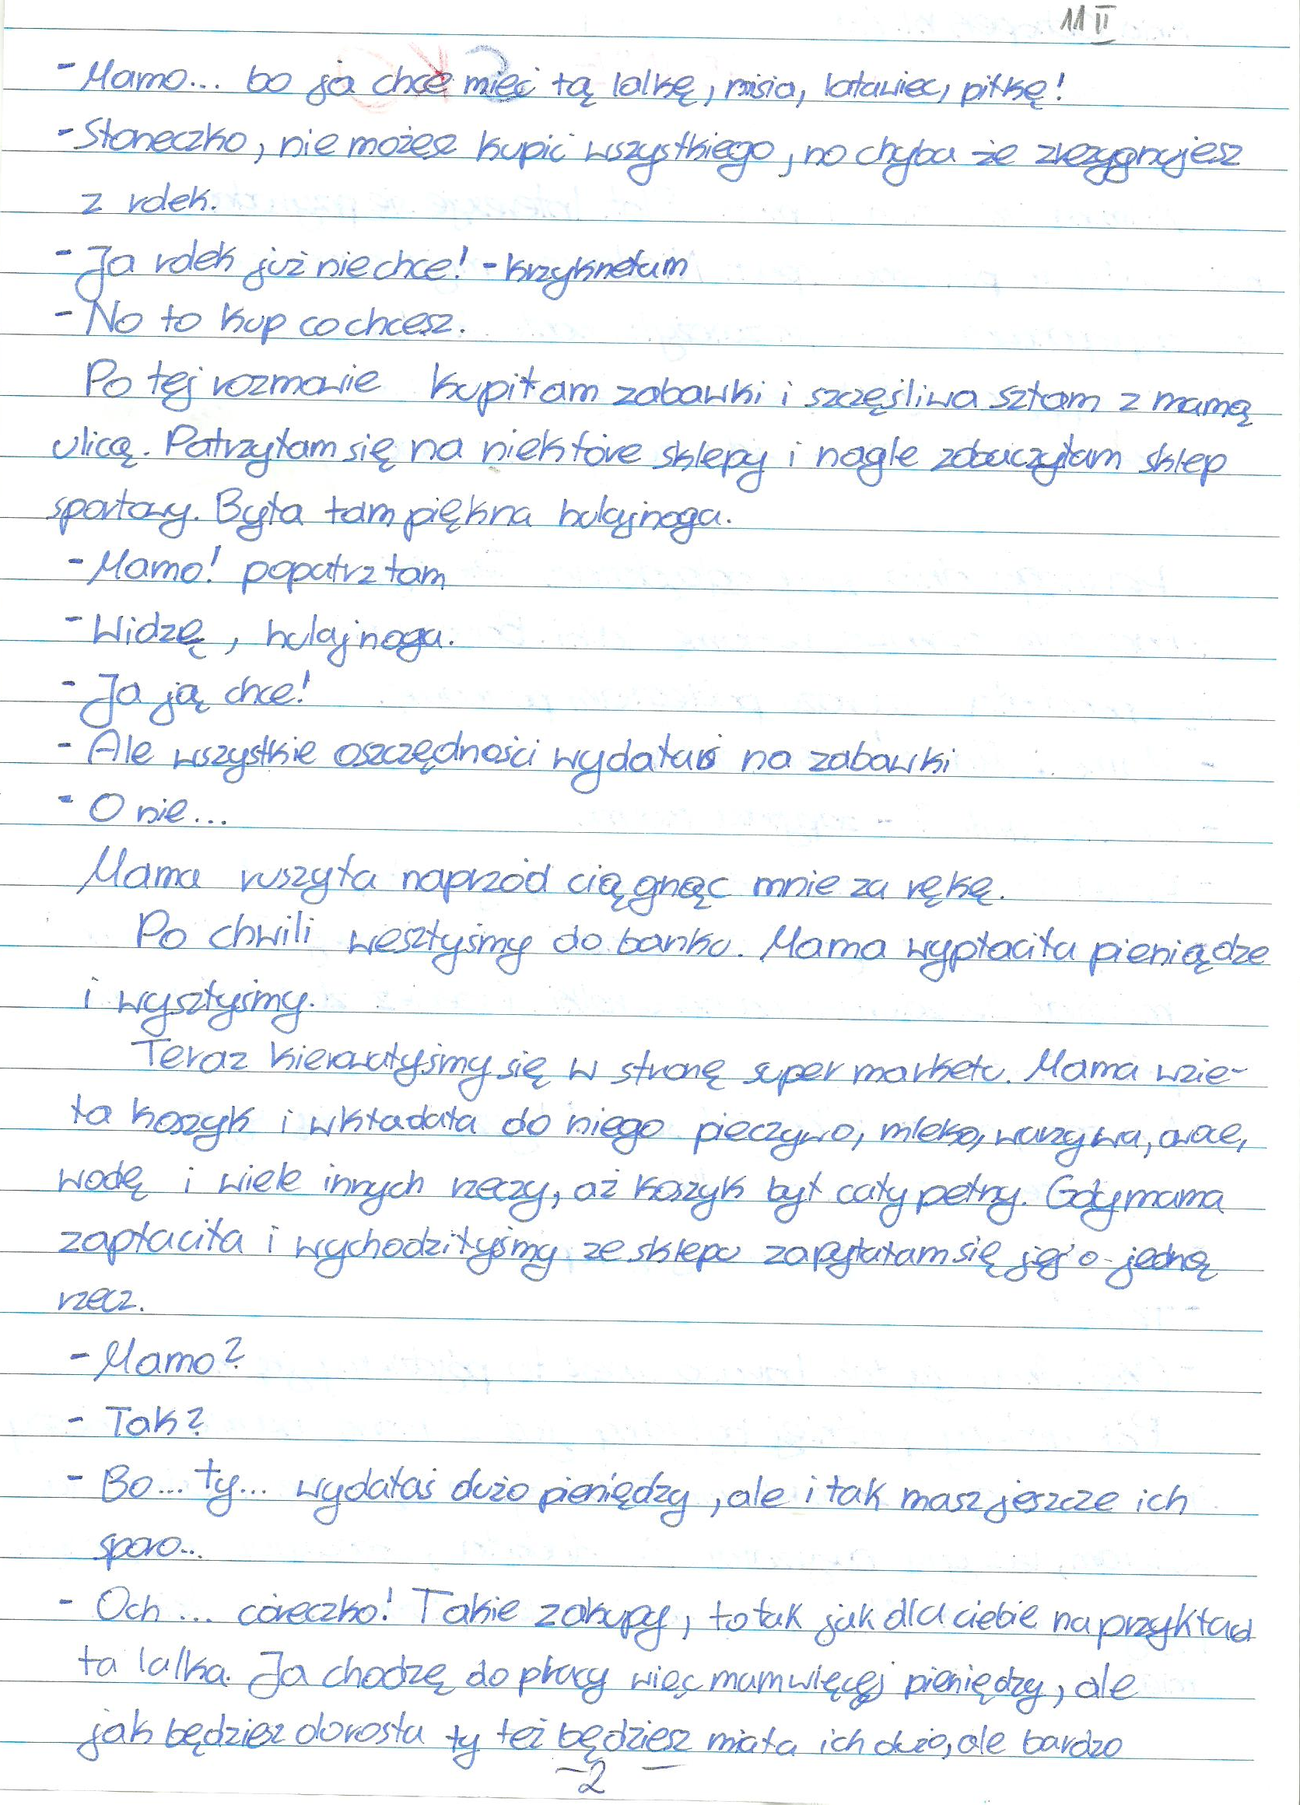 11 II
- Mamo... bo ja chcę mieć tą lalkę, misia, latawiec, piłkę!
- Słoneczko, nie możesz kupić wszystkiego, no chyba że zrezygnujesz
z rolek.
- Ja rolek już nie chce! - krzyknełam
- No to kup co chcesz.
Po tej rozmowie kupiłam zabawki i szczęśliwa szłam z mamą
ulicą. Patrzyłam się na niektóre sklepy i nagle zobaczyłam sklep
sportowy. Była tam piękna hulajnoga.
- Mamo! popatrz tam
- Widzę, hulajnoga.
- Ja ją chce!
- Ale wszystkie oszczędności wydałaś na zabawki
- O nie...
Mama ruszyła naprzód ciągnąc mnie za rękę.
Po chwili weszłyśmy do banku. Mama wypłaciła pieniądze
i wyszłyśmy.
Teraz kierowałyśmy się w stronę super marketu. Mama wzie-
ła koszyk i wkładała do niego pieczywo, mleko, warzywa, owoce,
wodę i wiele innych rzeczy, aż koszyk był cały pełny. Gdy mama
zapłaciła i wychodziłyśmy ze sklepu zapytałam się jej o jedną
rzecz.
- Mamo?
- Tak?
- Bo... ty... wydałaś dużo pieniędzy, ale i tak masz jeszcze ich
sporo...
- Och ... córeczko! Takie zakupy, to tak jak dla ciebie na przykład
ta lalka. Ja chodzę do pracy więc mam więcej pieniędzy, ale
jak będziesz dorosła ty też będziesz miała ich dużo, ale bardzo
- 2 -